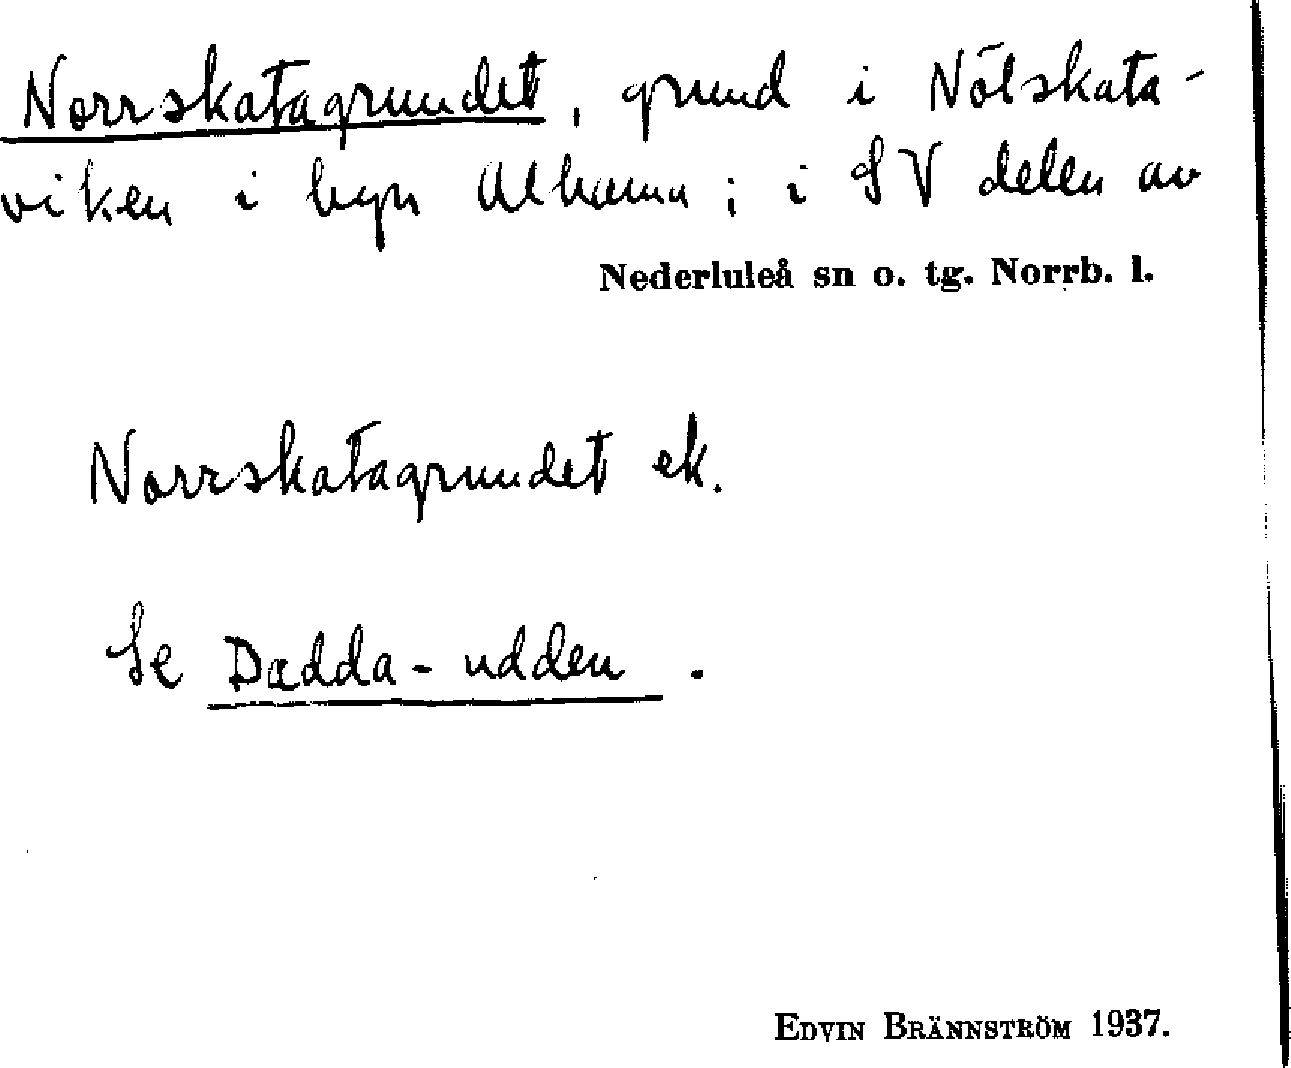 Norrskatagrundet, grund i Nölskata-
viken i byn Alhamn; i SV delen av
Nederluleå sn o. tg. Norrb. l.
Norrskatagrundet ek.
Se Dædda-udden.
EDVIN BRÄNNSTRÖM 1937.